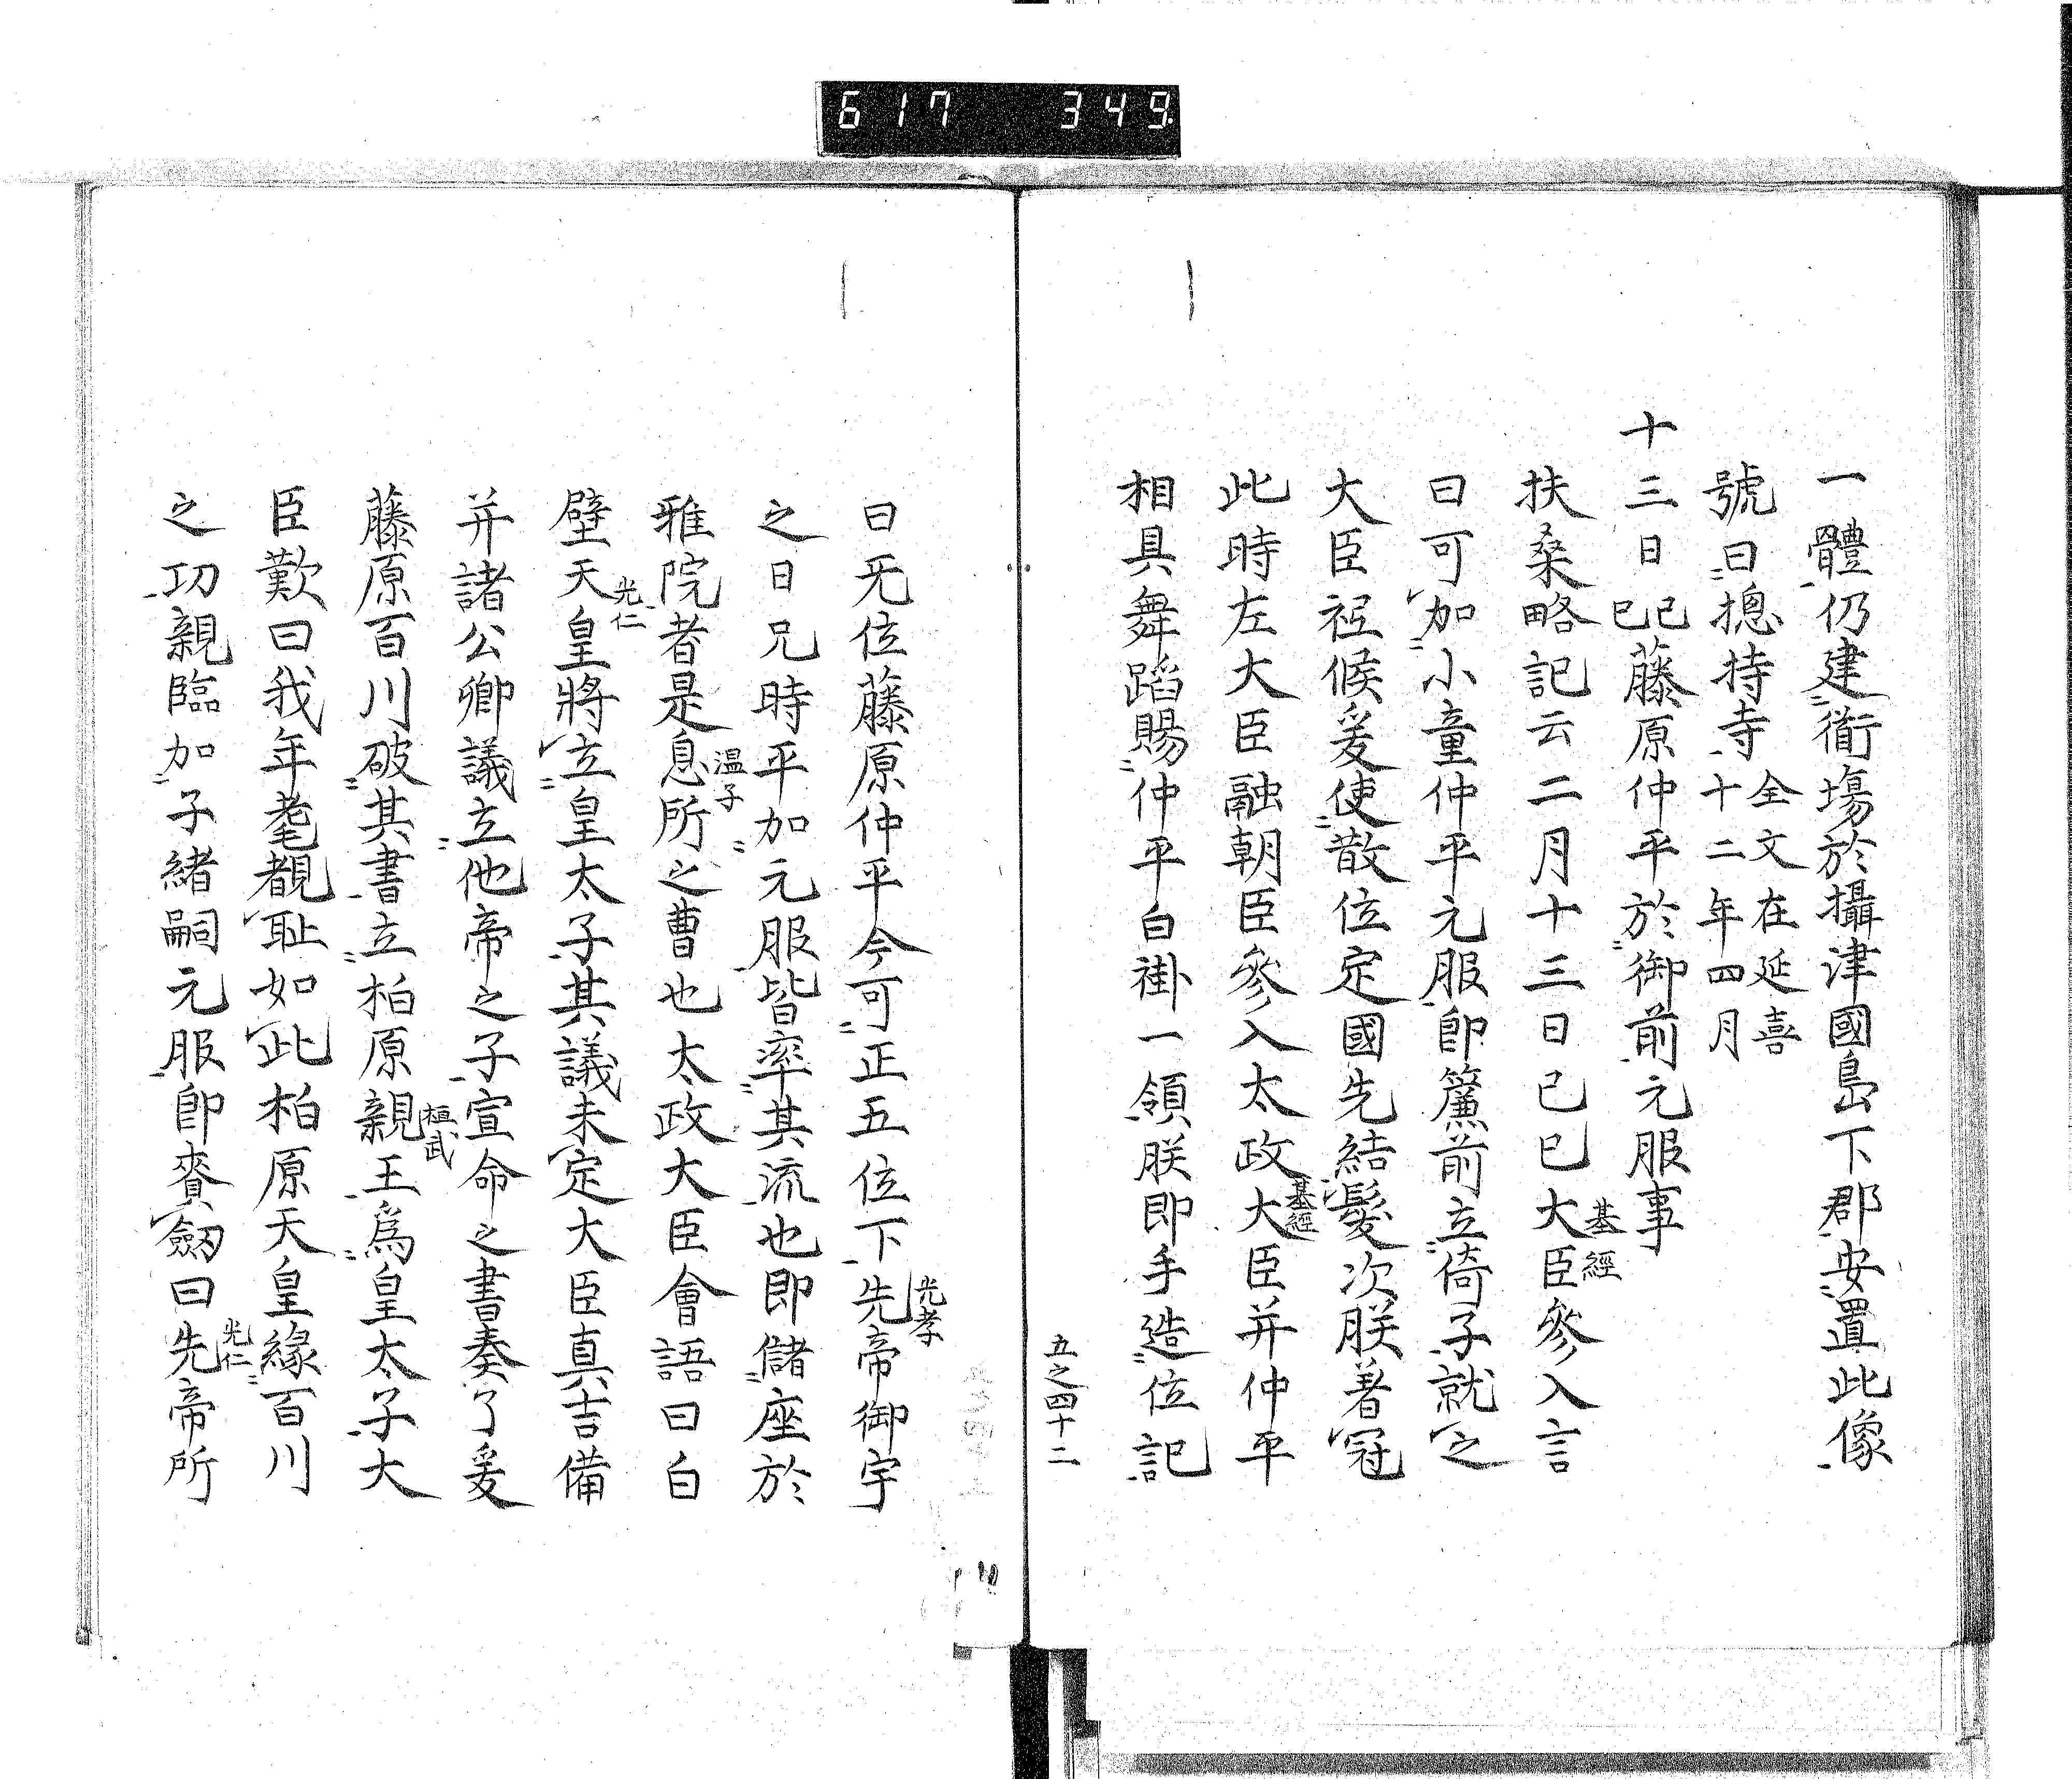 617 349
一體仍建衜場於攝津國島下郡安置此像
號曰摠持寺全文在延喜十二年四月
十三日己巳藤原仲平於御前元服事
扶桑略記云二月十三日己巳大臣基經參入言
曰可加小童仲平元服卽簾前立倚子就之
大臣祗候爰使散位定國先結髮次朕著冠
此時左大臣融朝臣參入太政大臣基經并仲平
相具舞蹈賜仲平白褂一領朕即手造位記
五之四十二
曰旡位藤原仲平今可正五位下先帝光孝御宇
之日兄時平加元服皆率其流也即儲座於
雅院者是息所温子之曹也太政大臣會語曰白
壁天皇光仁將立皇太子其議未定大臣真吉備
并諸公卿議立他帝之子宣命之書奏了爰
藤原百川破其書立柏原親王桓武爲皇太子大
臣歎曰我年耄覩耻如此柏原天皇緣百川
之功親臨加子緒嗣元服卽賚劒曰先帝光仁所